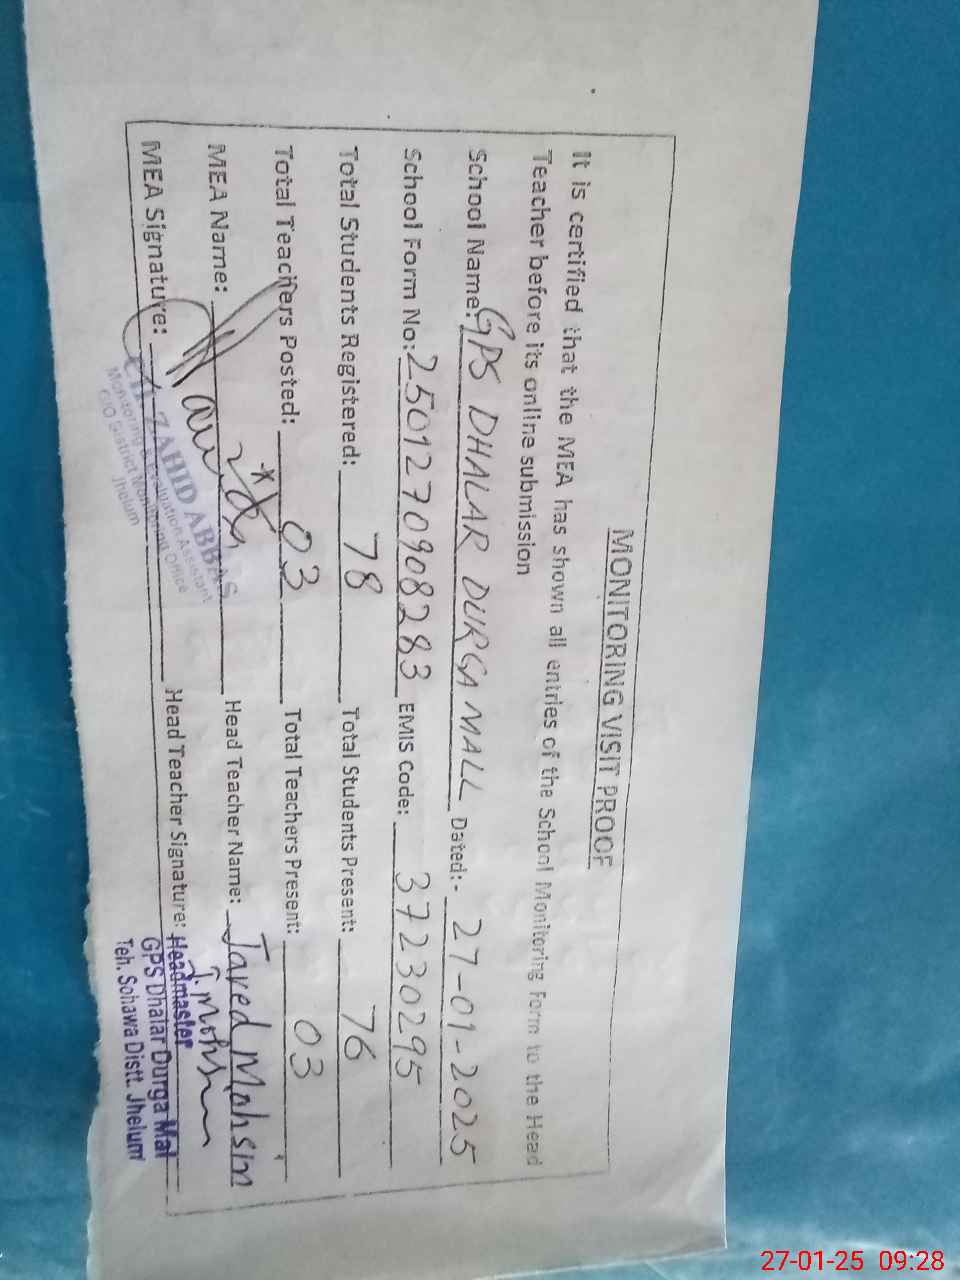 MONITORING VISIT PROOF
It is certified that the MEA has shown all entries of the School Monitoring Form to the Head
Teacher before its online submission
School Name: GPS DHALAR DURGA MALL Dated:- 27-01-2025
School Form No: 2501270908283 EMIS Code: 37230295
Total Students Registered: 78 Total Students Present: 76
Total Teachers Posted: 03 Total Teachers Present: 03
MEA Name: Head Teacher Name: Javed Mohsin
MEA Signature: Head Teacher Signature: J. Mohsin
CH. ZAHID ABBAS
Monitoring & Evaluation Assistant
O/O District Monitoring Office
Jhelum
Headmaster
GPS Dhalar Durga Mal
Teh. Sohawa Distt. Jhelum
27-01-25 09:28